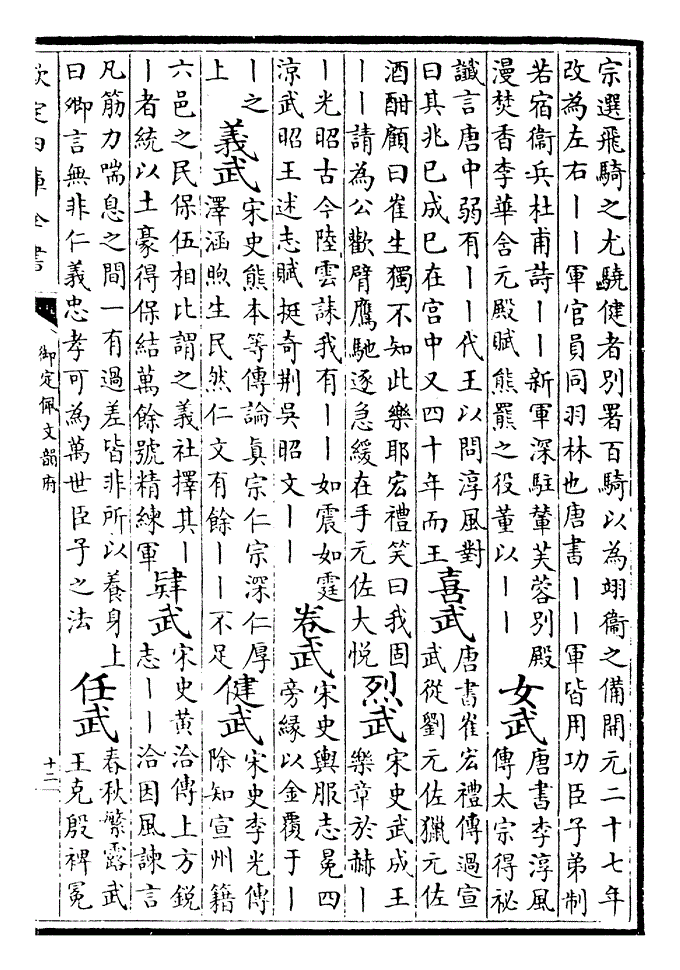 宗選飛騎之尤驍健者別署百騎以為翊衞之備開元二十七年
改為左右丨丨軍官員同羽林也唐書丨丨軍皆用功臣子弟制
若宿衞兵杜甫詩丨丨新軍深駐輦芙蓉別殿
漫焚香李華含元殿賦熊羆之役董以丨丨
女武
唐書李淳風
傳太宗得祕
讖言唐中弱有丨丨代王以問淳風對
曰其兆已成已在宫中又四十年而王
喜武
唐書崔宏禮傳過宣
武從劉元佐獵元佐
酒酣顧曰崔生獨不知此樂耶宏禮笑曰我固
丨丨請為公歡臂鷹馳逐急緩在手元佐大悦
烈武
宋史武成王
樂章於赫丨
丨光昭古今陸雲誄我有丨丨如震如霆
涼武昭王述志賦挺奇荆吳昭文丨丨
卷武
宋史輿服志冕四
旁緣以金覆于丨
丨之
上
義武
宋史熊本等傳論真宗仁宗深仁厚
澤涵煦生民然仁文有餘丨丨不足
健武
宋史李光傳
除知宣州籍
六邑之民保伍相比謂之義社擇其丨
丨者統以土豪得保結萬餘號精練軍
肆武
宋史黄洽傳上方鋭
志丨丨洽因風諫言
凡筋力喘息之間一有過差皆非所以養身上
曰卿言無非仁義忠孝可為萬世臣子之法
任武
春秋繁露武
王克殷裨冕
欽定四庫全書
御定佩文韻府
十二